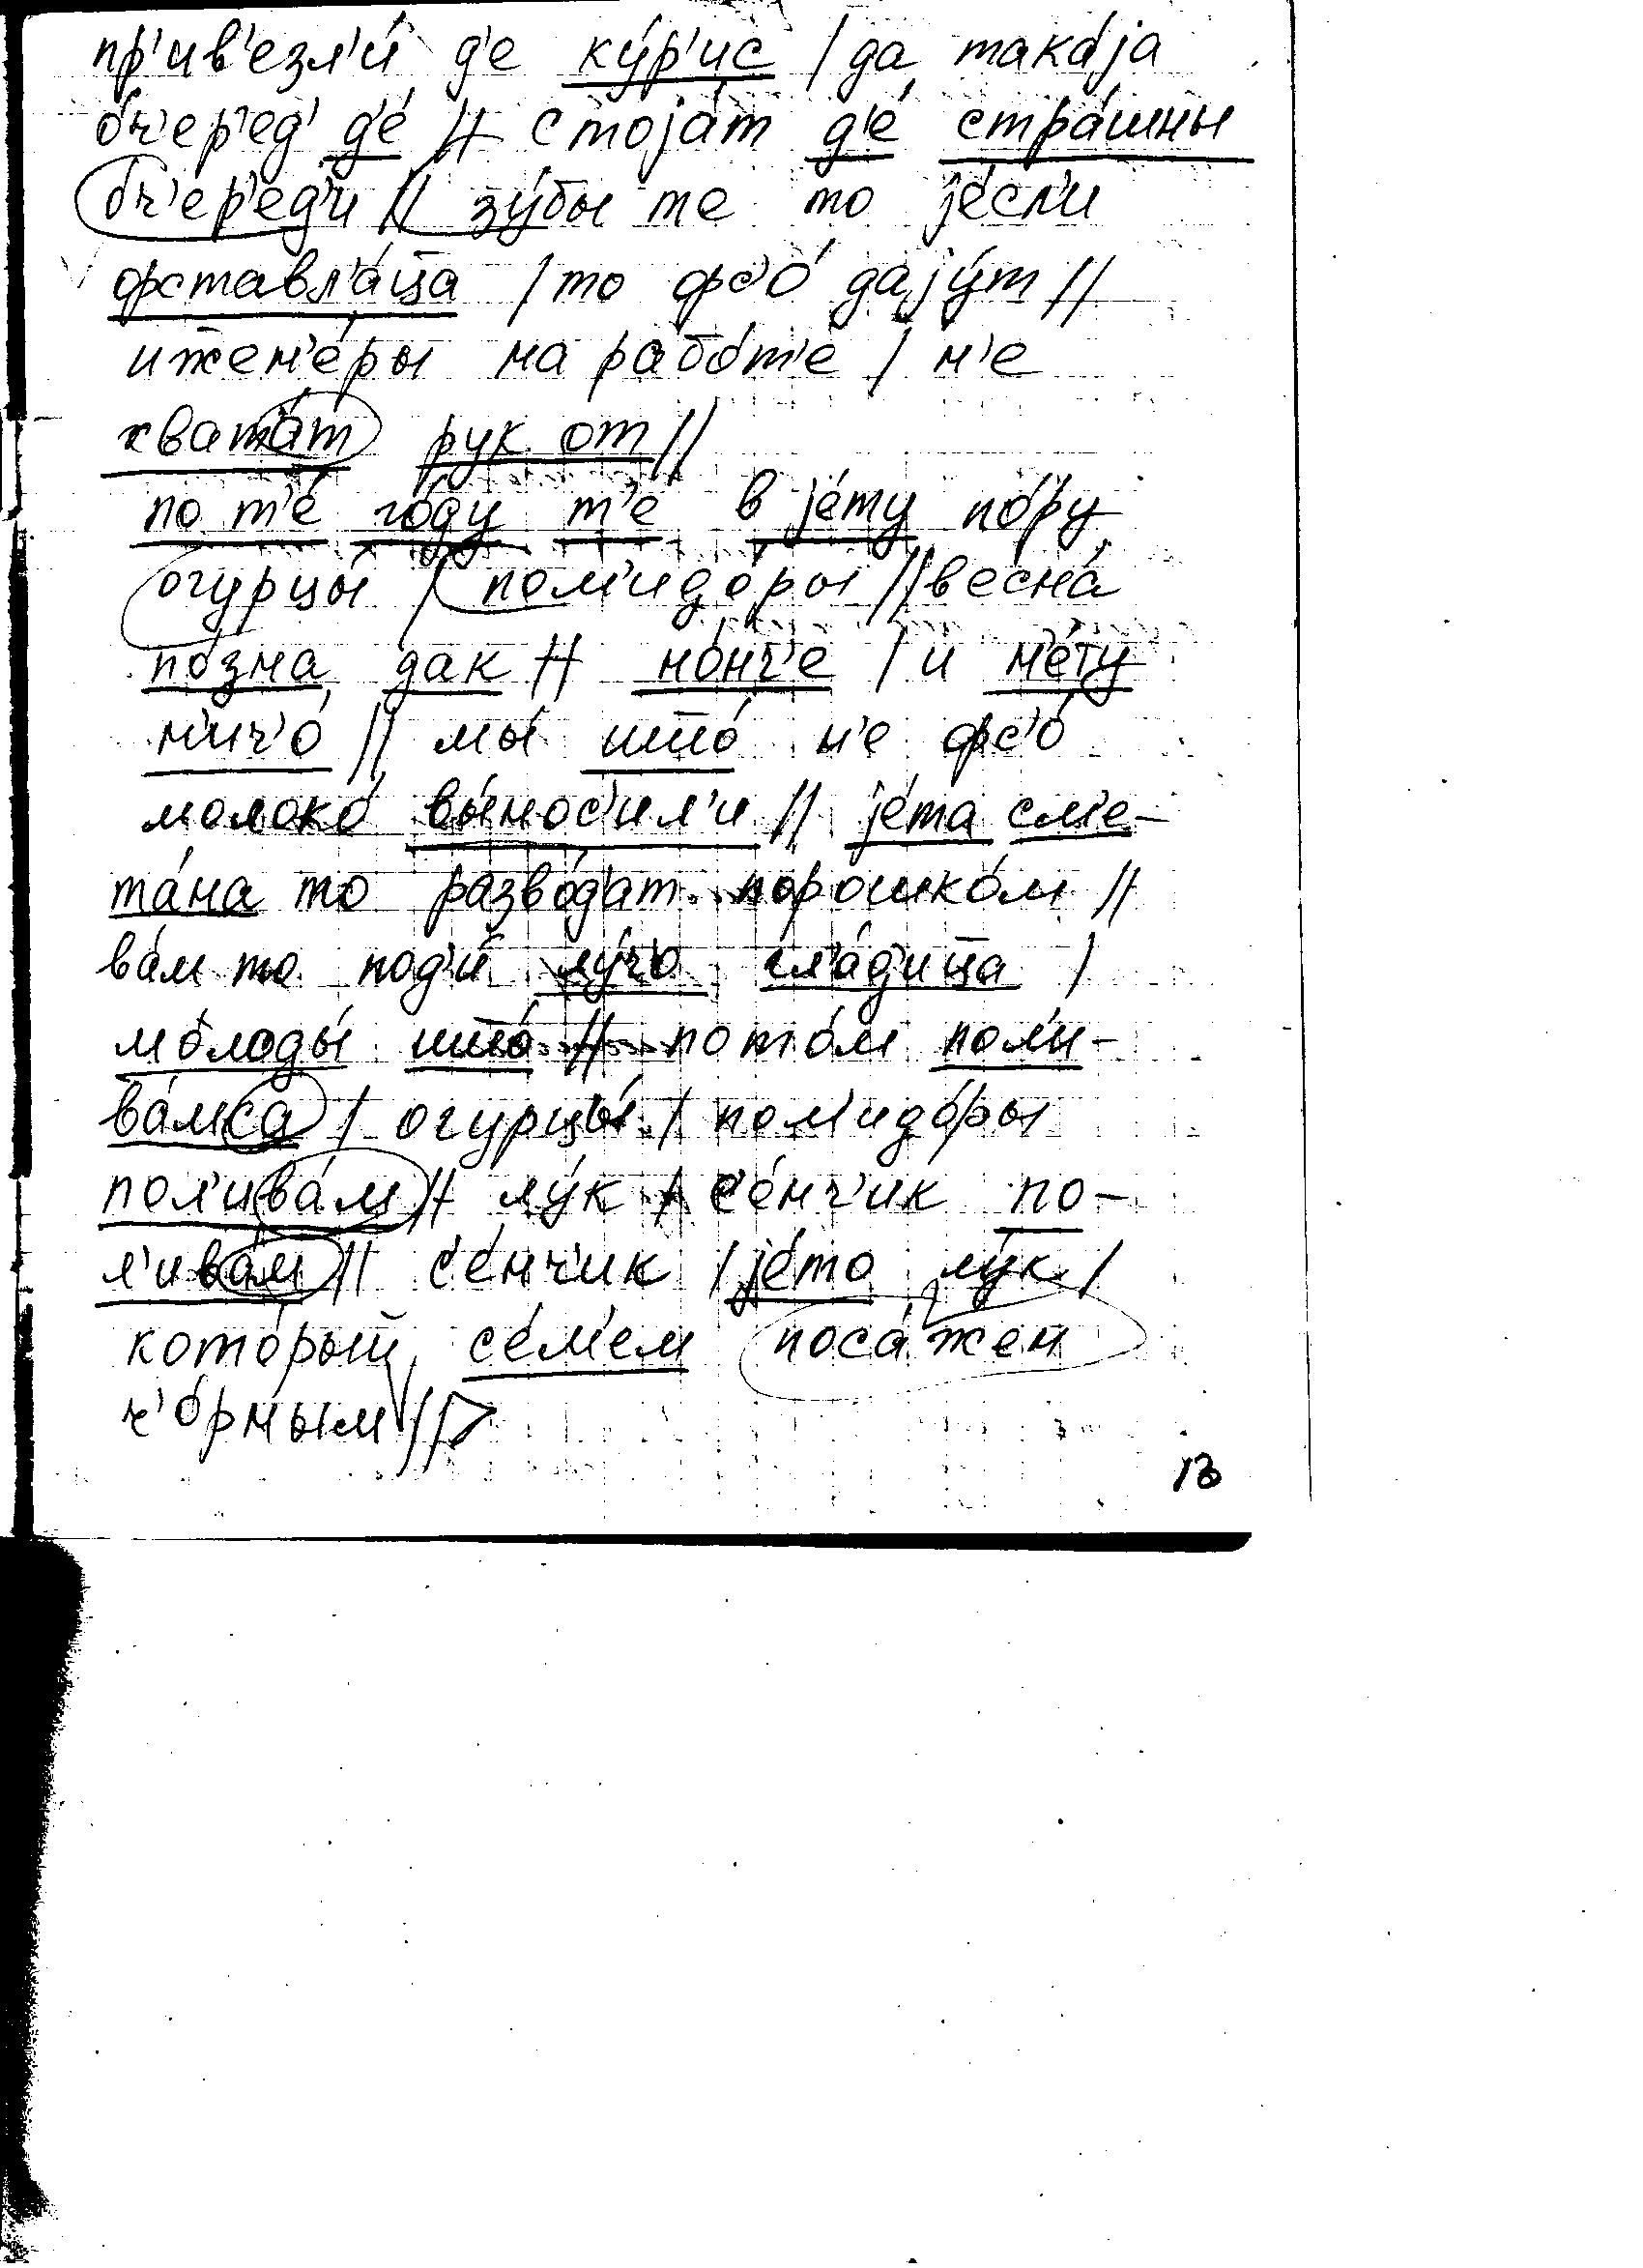 пр'ив'езл'и́ д'е ку́р'ис / да така́jа
о́ч'ер'ед' д'е́ // стоjа́т д'е́ стра́шны
о́ч'ер'ед'и // зу́бы те то jе́сл'и
фставл'а́ца / то фс'о́ даjу́т //
ижен'е́ры на рабо́т'е / н'е
хвата́т рук от //
по т'е́ го́ду т'е в jе́ту по́ру
огурцы́ / пом'идо́ры // весна́
по́зна дак // но́нч'е / и н'е́ту
н'ич'о́ // мы́ што́ н'е фс'о́
молоко́ вы́нос'ил'и // jе́та см'е-
та́на то разво́д'ат порошко́м //
ва́м то под'и́ лу́ч'о гл'а́д'ица /
мо́лоды́ што́ // пото́м пол'и-
ва́мса / огурцы́ / пом'идо́ры
пол'ива́м // лу́к / с'е́нч'ик по-
л'ива́м // с'е́нч'ик / jе́то лу́к /
кото́рый с'е́м'ем поса́жен
ч'о́рным //
13